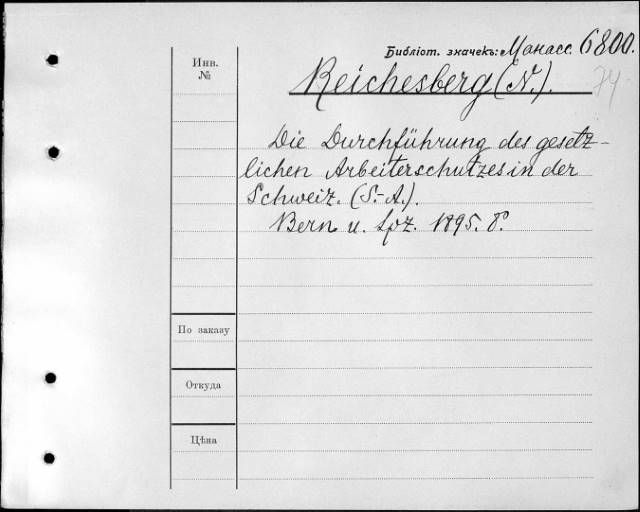 Библіот. значекъ: Манасс. 6800.
Инв. №
Reichesberg (N.). 74
Die Durchführung des gesetz-
lichen Arbeiterschutzes in der
Schweiz. (S.-A.).
Bern u. Lpz. 1895. 8°.
По заказу
Откуда
Цѣна